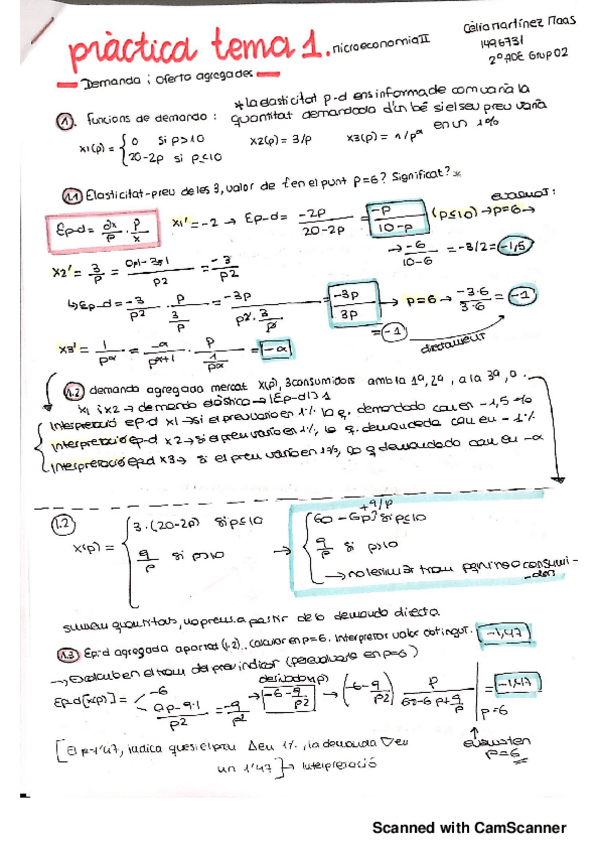 pràctica tema 1. microeconomia II
Cèlia Martínez Maas
1496731
2º ADE Grup 02
Demanda i oferta agregades
1. funcions de demanda:
* la elasticitat p-d ens informa de com varia la quantitat demandada d'un bé si el seu preu varia en un 1%
x1(p) = { 0 si p>10
20-2p si p≤10
x2(p) = 3/p
x3(p) = 1/pα
1.1 Elasticitat-preu de les 3, valor de l'en el punt p=6? Significat? *
Ep-d = ∂x/p · p/x
x1' = -2 → Ep-d = -2p/20-2p = -p/10-p (p≤10) → p=6 →
avaluar:
→ -6/10-6 = -3/2 = -1,5
x2' = 3/p = 0p-3·1/p2 = -3/p2
↳ Ep-d = -3/p2 · p/3/p = -3p/p2·3/p = -3p/3p → p=6 → -3·6/3·6 = -1
= -1
directament
x3' = 1/pα = -α/pα+1 · p/1/pα = -α
1.2 demanda agregada mercat X(p), 3 consumidors amb la 1ª, 2ª, a la 3ª, 0.
x1 i x2 → demanda elàstica → |Ep-d|>1
Interpretació ep-d x1 → si el preu varia en 1% la q. demandada cau en -1,5%
Interpretació ep-d x2 → si el preu varia en 1%, la q. demandada cau en -1%
Interpretació ep-d x3 → si el preu varia en 1%, la q demandada cau en -α
1.2
X(p) = { 3·(20-2p) si p≤10
9/p si p>10
→ { 60-6p+9/p si p≤10
9/p si p>10
→ no leximar tram perquè no consumidors
sumem quantitats, no preus a partir de la demanda directa.
1.3 Ep-d agregada apartat (1.2). Calcular en p=6. Interpretar valor obtingut. -1,47
→ Escollir en el tram del preu indicat (per avaluar-te en p=6)
Ep-d [x(p)] = < -6
0p-9·1/p2 = -9/p2
derivada x(p)
→ -6-9/p2 → (-6-9/p2) p/60-6p+9/p | p=6 = -1,47
avaluat en p=6
[El p-1'47, indica que si el preu Δ en 1%, la demanda ∇ en un 1'47] → Interpretació
Scanned with CamScanner